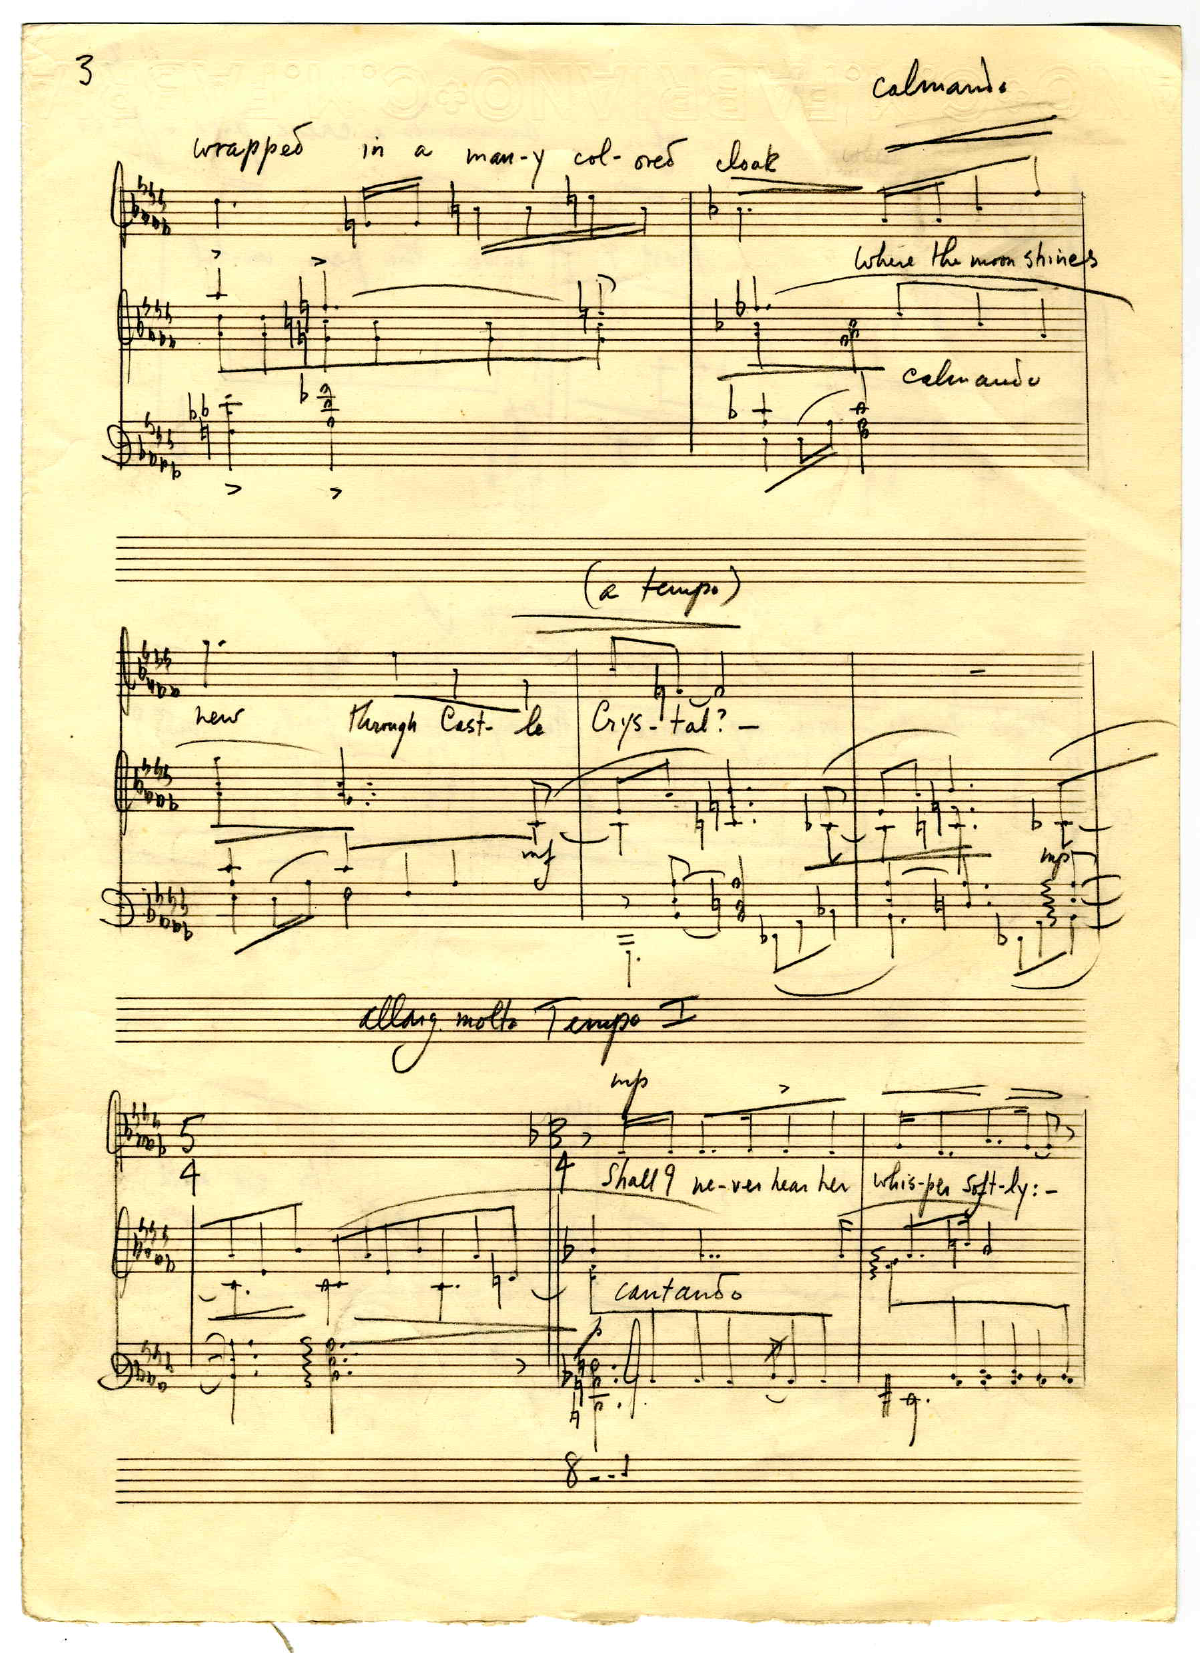 3
calmando
wrapped in a man-y col-ored cloak
where the moon shines
calmando
(a tempo)
new through Cast- le Crys-tal? –
mf
mp
allarg. molto Tempo I
mp
5 3
4 4
Shall I ne-ver hear her whis-per soft-ly:-
cantando
p
8---